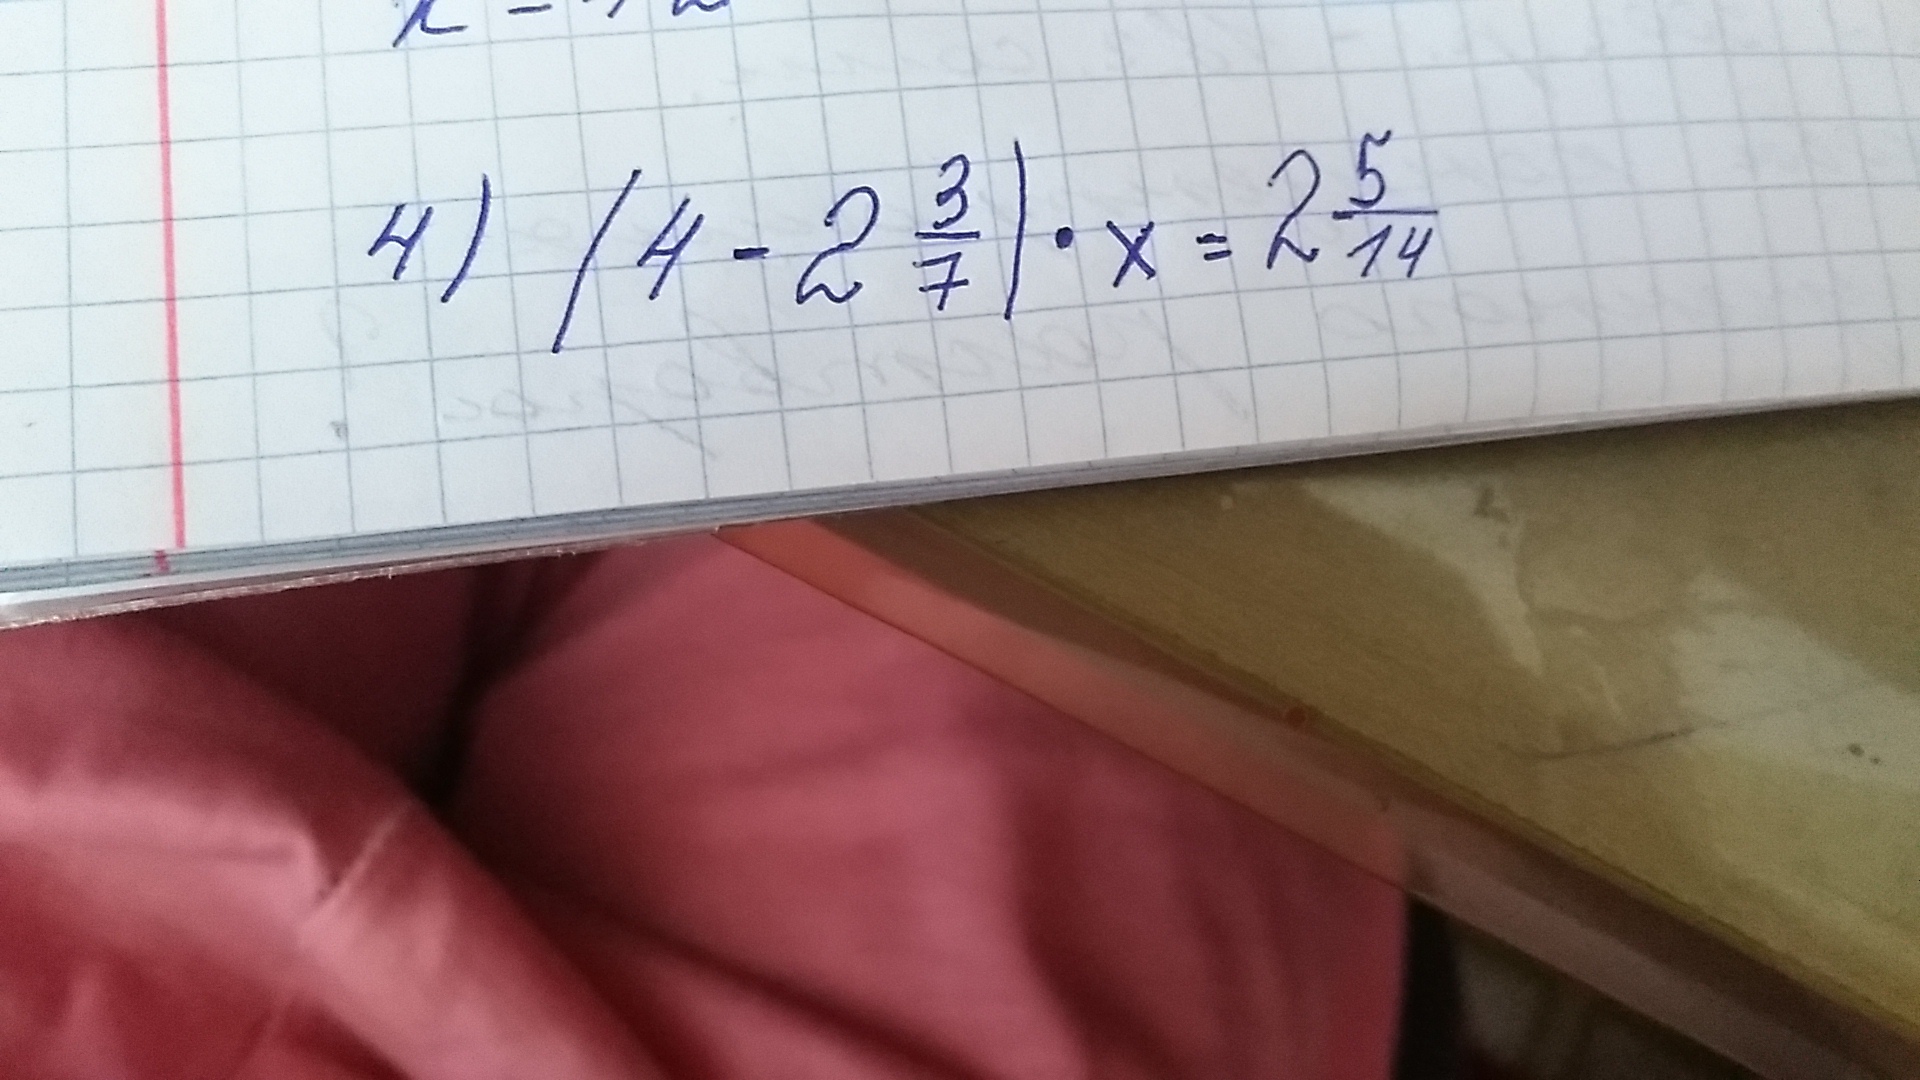 4) (4 - 2 3/7) · x = 2 5/14